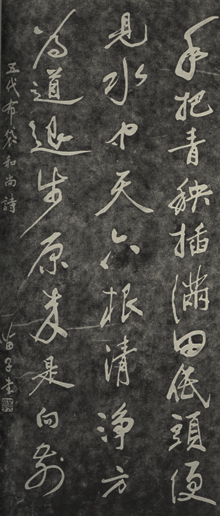 手把青秧插滿田低頭便
見水中天六根清淨方
為道退步原來是向前
五代布袋和尚詩